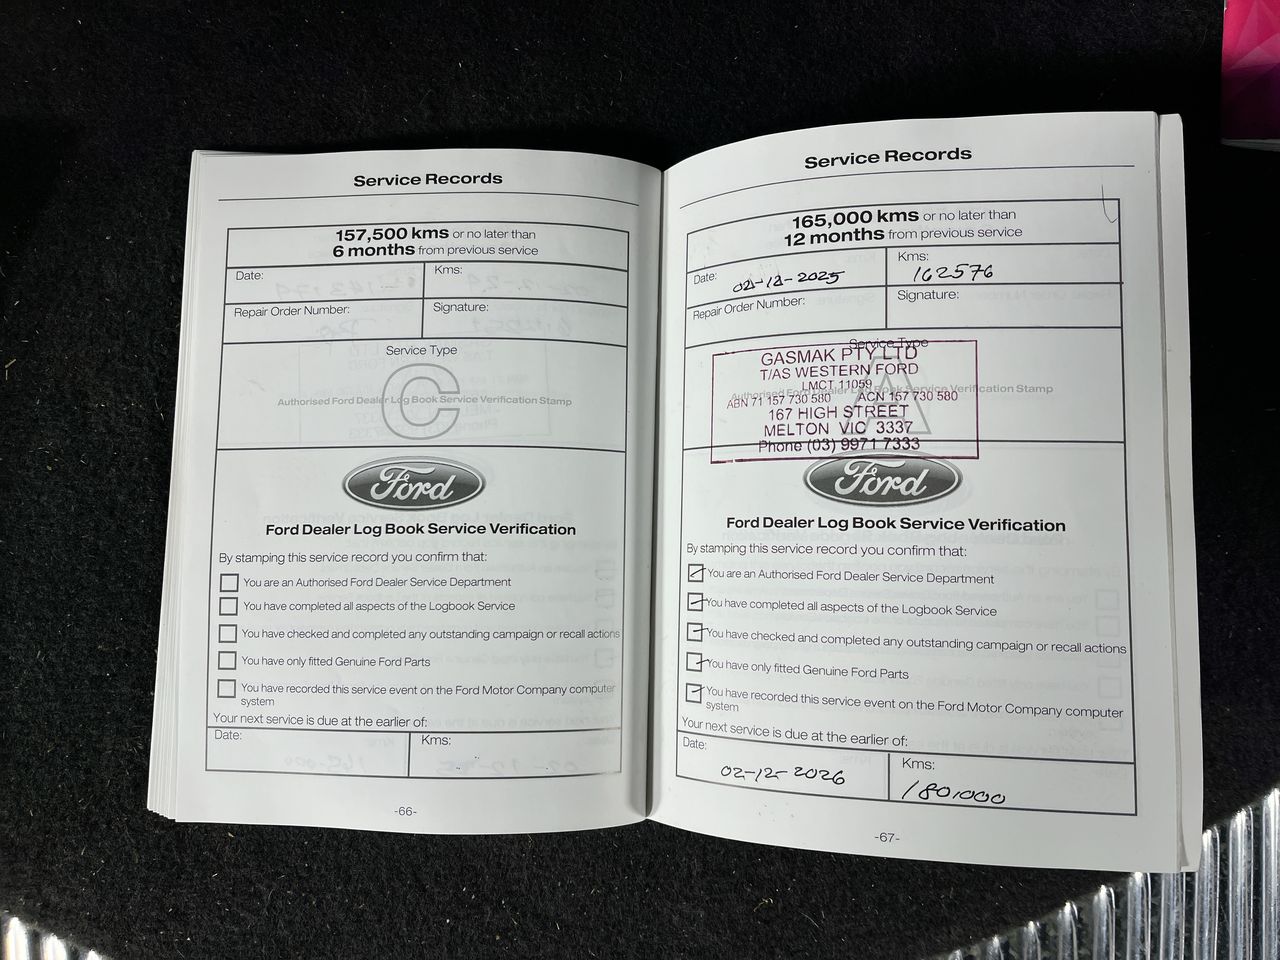 Service Records
157,500 kms or no later than
6 months from previous service
Date:
Kms:
Repair Order Number:
Signature:
Service Type
C
Authorised Ford Dealer Log Book Service Verification Stamp
Ford
Ford Dealer Log Book Service Verification
By stamping this service record you confirm that:
You are an Authorised Ford Dealer Service Department
You have completed all aspects of the Logbook Service
You have checked and completed any outstanding campaign or recall actions
You have only fitted Genuine Ford Parts
You have recorded this service event on the Ford Motor Company computer
system
Your next service is due at the earlier of:
Date:
Kms:
-66-
Service Records
165,000 kms or no later than
12 months from previous service
Date: 02-12-2025
Kms: 162576
Repair Order Number:
Signature:
Service Type
A
Authorised Ford Dealer Log Book Service Verification Stamp
GASMAK PTY LTD
T/AS WESTERN FORD
LMCT 11059
ABN 71 157 730 580 ACN 157 730 580
167 HIGH STREET
MELTON VIC 3337
Phone (03) 9971 7333
Ford
Ford Dealer Log Book Service Verification
By stamping this service record you confirm that:
You are an Authorised Ford Dealer Service Department
You have completed all aspects of the Logbook Service
You have checked and completed any outstanding campaign or recall actions
You have only fitted Genuine Ford Parts
You have recorded this service event on the Ford Motor Company computer
system
Your next service is due at the earlier of:
Date: 02-12-2026
Kms: 180,000
-67-